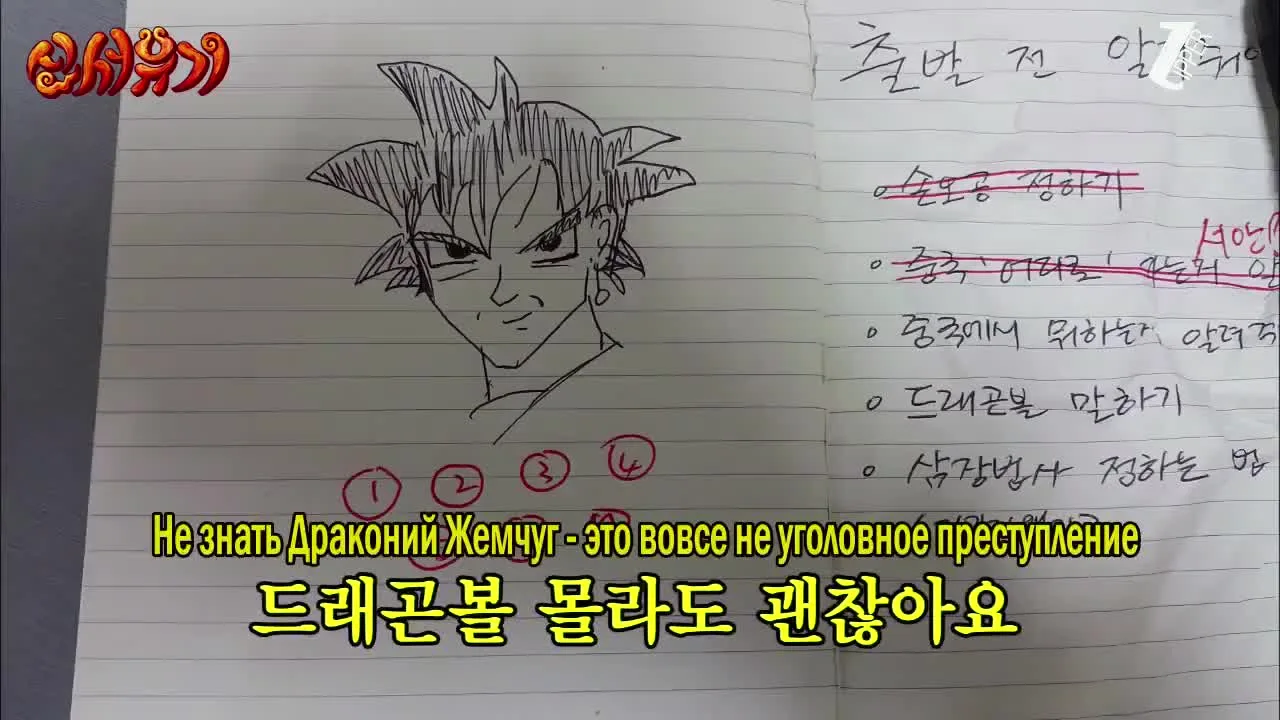 신서유기
출발 전
손오공 정하기
서안
중국 '어디로' 가는지
중국에서 뭐하는지 알려주
드래곤볼 말하기
삼장법사 정하는 법
① ② ③ ④
Не знать Драконий Жемчуг - это вовсе не уголовное преступление
드래곤볼 몰라도 괜찮아요